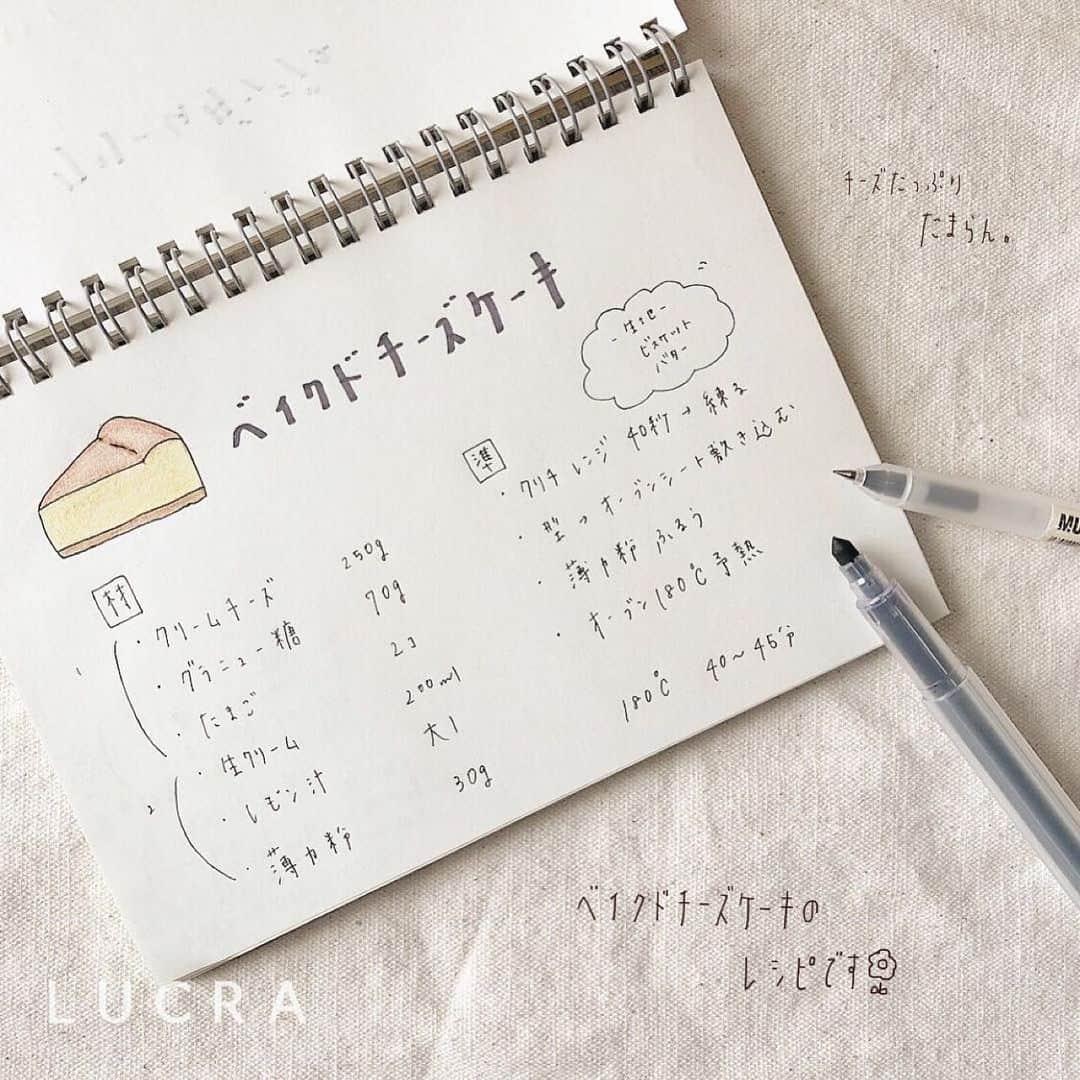 チーズたっぷり
たまらん。
ベイクドチーズケーキ
材
1
・クリームチーズ 250g
・グラニュー糖 70g
・たまご 2コ
2
・生クリーム 200ml
・レモン汁 大1
・薄力粉 30g
ビスケット
バター
準
・クリチ レンジ 40秒→練る
・型→オーブンシート敷き込む
・薄力粉 ふるう
・オーブン180℃予熱
180℃ 40〜45分
MU
ベイクドチーズケーキの
レシピです
LUCRA